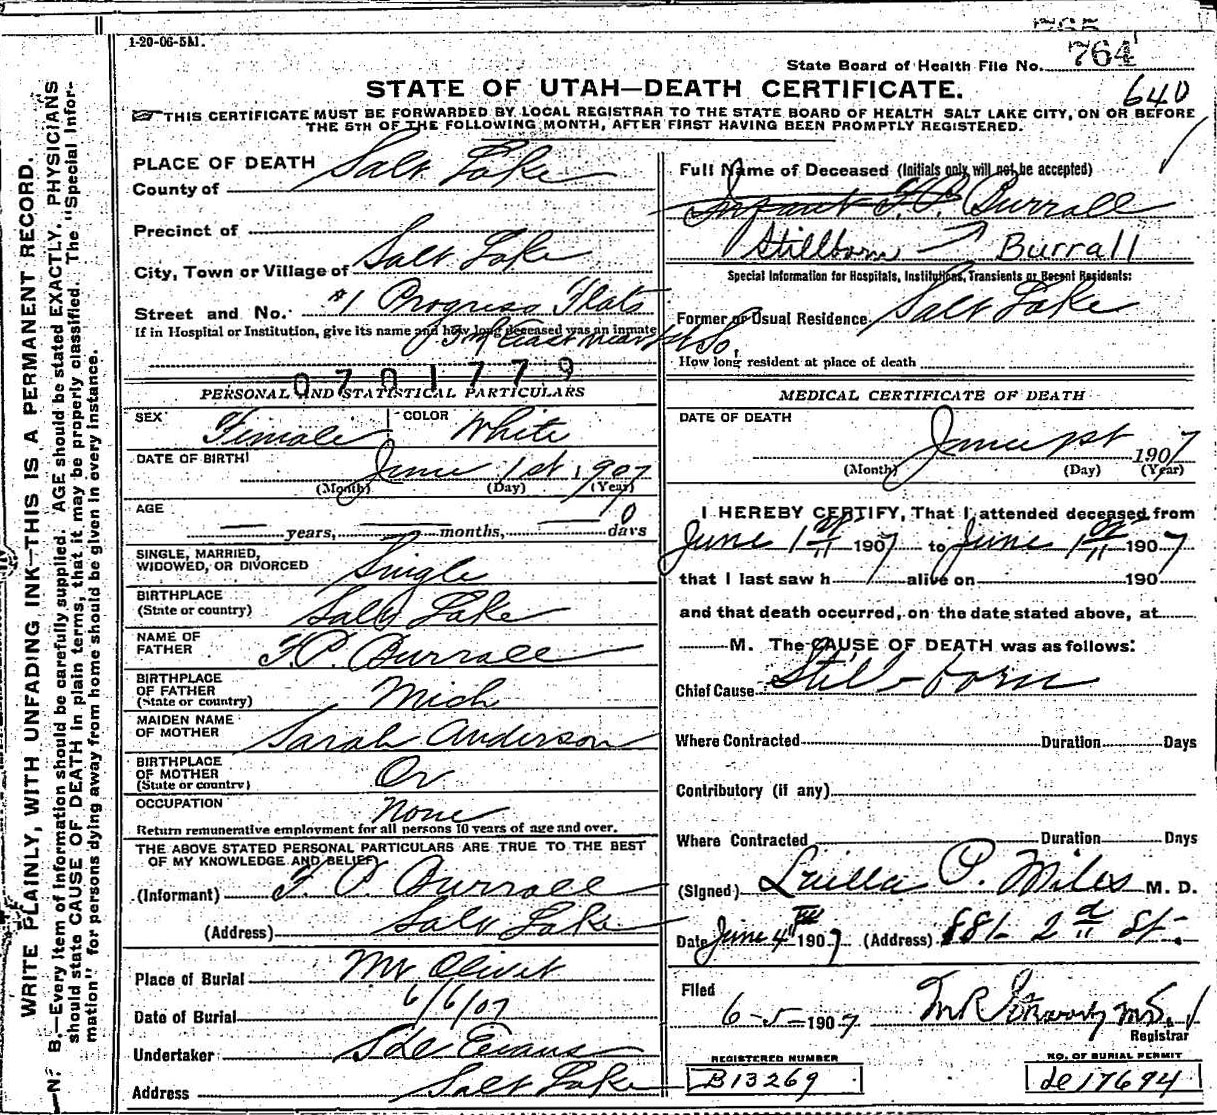 1-20-06-5M.
764
State Board of Health File No.
STATE OF UTAH—DEATH CERTIFICATE.
640
THIS CERTIFICATE MUST BE FORWARDED BY LOCAL REGISTRAR TO THE STATE BOARD OF HEALTH SALT LAKE CITY, ON OR BEFORE
THE 5TH OF THE FOLLOWING MONTH, AFTER FIRST HAVING BEEN PROMPTLY REGISTERED.
WRITE PLAINLY, WITH UNFADING INK—THIS IS A PERMANENT RECORD.
N. B.—Every item of information should be carefully supplied. AGE should be stated EXACTLY. PHYSICIANS
should state CAUSE OF DEATH in plain terms, that it may be properly classified. The "Special Infor-
mation" for persons dying away from home should be given in every instance.
PLACE OF DEATH
County of Salt Lake
Precinct of
City, Town or Village of Salt Lake
Street and No. #1 Progress Flats
If in Hospital or Institution, give its name and how long deceased was an inmate
0701779
PERSONAL AND STATISTICAL PARTICULARS
SEX Female COLOR White
DATE OF BIRTH June 1st 1907
(Month) (Day) (Year)
AGE
years, months, 0 days
SINGLE, MARRIED,
WIDOWED, OR DIVORCED Single
BIRTHPLACE
(State or country) Salt Lake
NAME OF
FATHER F.P. Burrall
BIRTHPLACE
OF FATHER
(State or country) Mich
MAIDEN NAME
OF MOTHER Sarah Anderson
BIRTHPLACE
OF MOTHER
(State or country) Or
OCCUPATION None
Return remunerative employment for all persons 10 years of age and over.
THE ABOVE STATED PERSONAL PARTICULARS ARE TRUE TO THE BEST
OF MY KNOWLEDGE AND BELIEF
(Informant) F. P. Burrall
(Address) Salt Lake
Place of Burial Mt Olivet
Date of Burial 6/6/07
Undertaker Evans
Address Salt Lake
Full Name of Deceased (Initials only will not be accepted)
Infant F.P. Burrall
Stillborn Burrall
Special Information for Hospitals, Institutions, Transients or Recent Residents:
Former or Usual Residence Salt Lake
How long resident at place of death
MEDICAL CERTIFICATE OF DEATH
DATE OF DEATH
June 1st 1907
(Month) (Day) (Year)
I HEREBY CERTIFY, That I attended deceased from
June 1st 1907 to June 1st 1907
that I last saw h alive on 190
and that death occurred, on the date stated above, at
M. The CAUSE OF DEATH was as follows:
Chief Cause Still-born
Where Contracted Duration Days
Contributory (if any)
Where Contracted Duration Days
(Signed) Luella P. Miles M. D.
Date June 4th 1907 (Address) 881- 2d St.
Filed
6-5-1907
Registrar
REGISTERED NUMBER
B13269
NO. OF BURIAL PERMIT
de17694